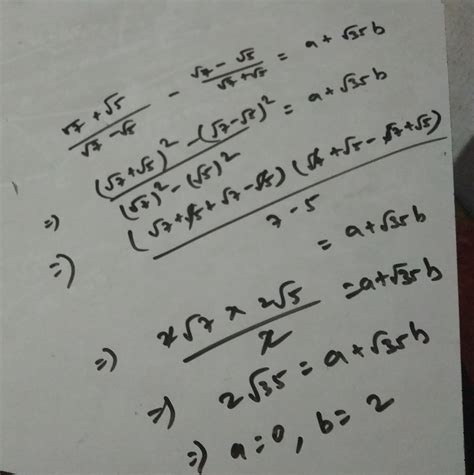 (√7 + √5)/(√7 − √5) − (√7 − √5)/(√7 + √5) = a + √35 b
⇒ ((√7+√5)² − (√7−√5)²)/((√7)² − (√5)²) = a + √35 b
⇒ ((√7 + √5 + √7 − √5) (√7 + √5 − √7 + √5))/(7 − 5)
= a + √35 b
⇒ (2√7 × 2√5)/2 = a + √35 b
⇒ 2√35 = a + √35 b
⇒ a = 0, b = 2